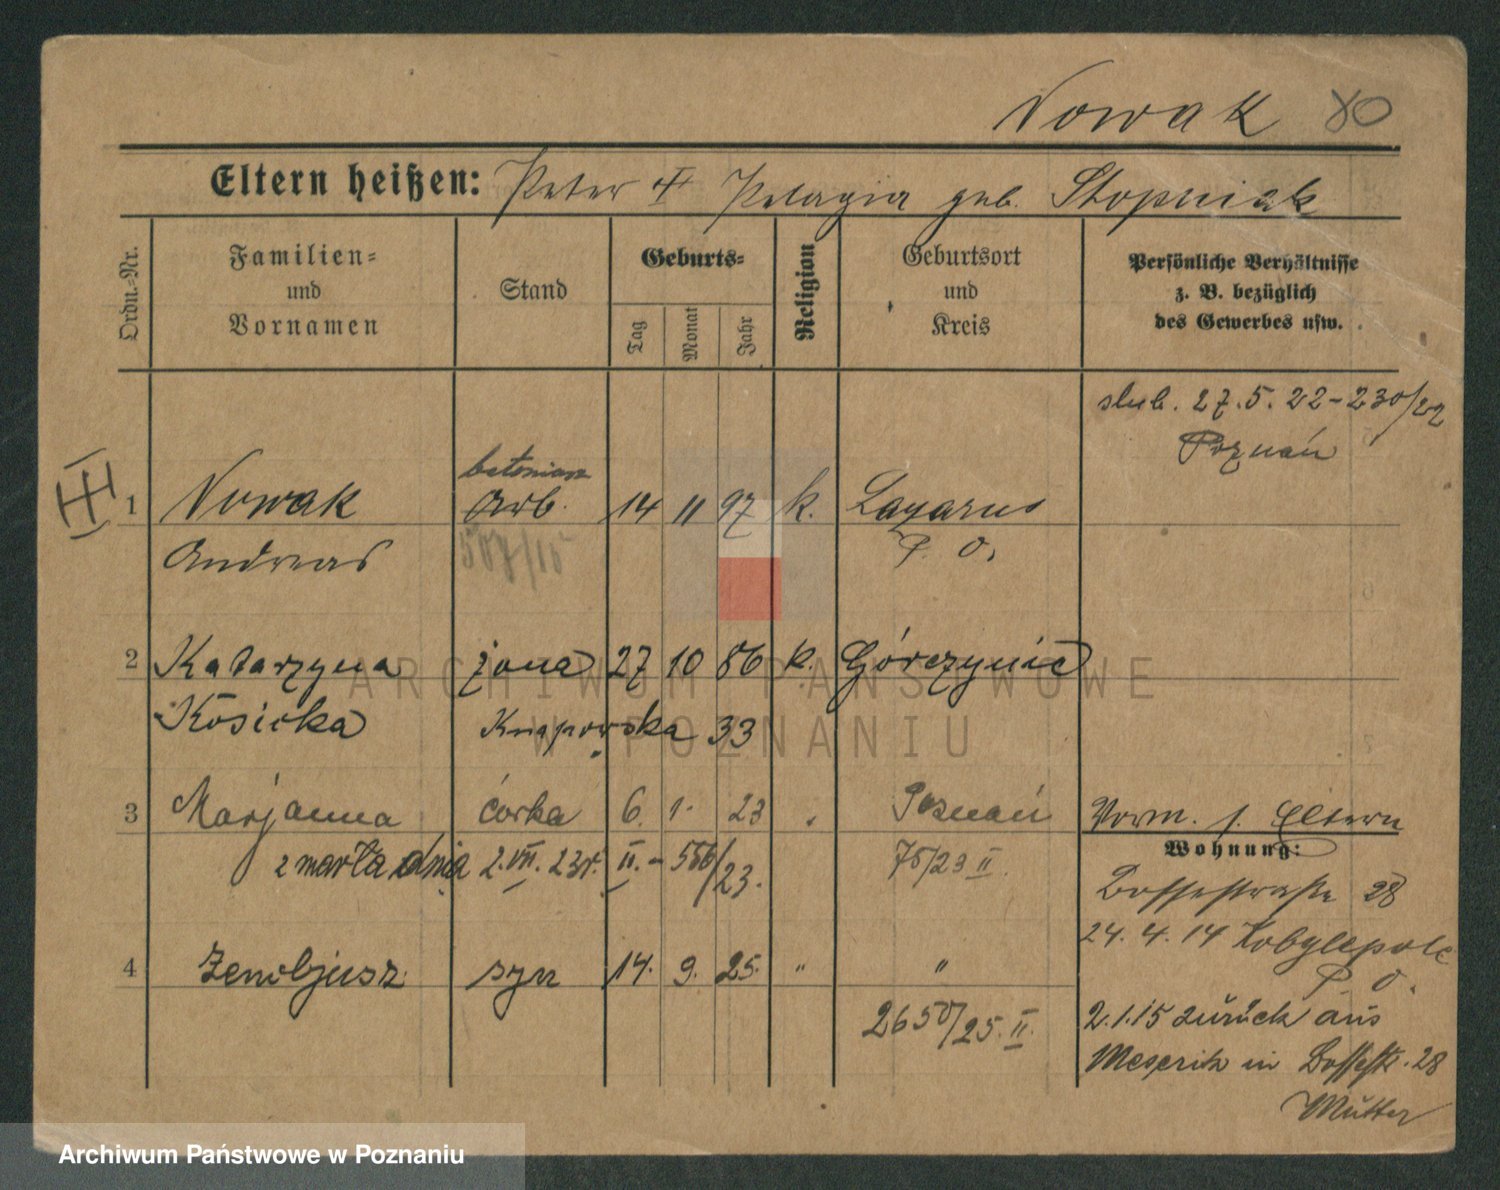 Nowak 80
Eltern heißen: Peter Pelagia geb. Stopniak
Ordn.-Nr.
Familien-
und
Vornamen
Stand
Geburts-
Tag
Monat
Jahr
Religion
Geburtsort
und
Kreis
Persönliche Verhältnisse
z. B. bezüglich
des Gewerbes usw.
ślub. 27.5.22-230/22
Poznań
betoniarz
1 Nowak Arb. 14 11 97 k. Lazarus
Andreas 587/15 P. O.
2 Katarzyna żona 27 10 86 k.
Kosicka Knapowska 33
3 Marjanna córka 6. 1. 23 Poznań
zmarła dnia 2.VII.23r. II.- 556/23. 75/23 II.
4 Zenobjusz syn 14. 9. 25. " "
2650/25. II.
Vorm. s. Eltern
Wohnung:
Bossestraße 28
24. 4. 14 Kobylepole
P. O.
2.1.15 zurück aus
Meseritz in Bossestr. 28
Mutter
ARCHIWUM PAŃSTWOWE
W POZNANIU
Archiwum Państwowe w Poznaniu